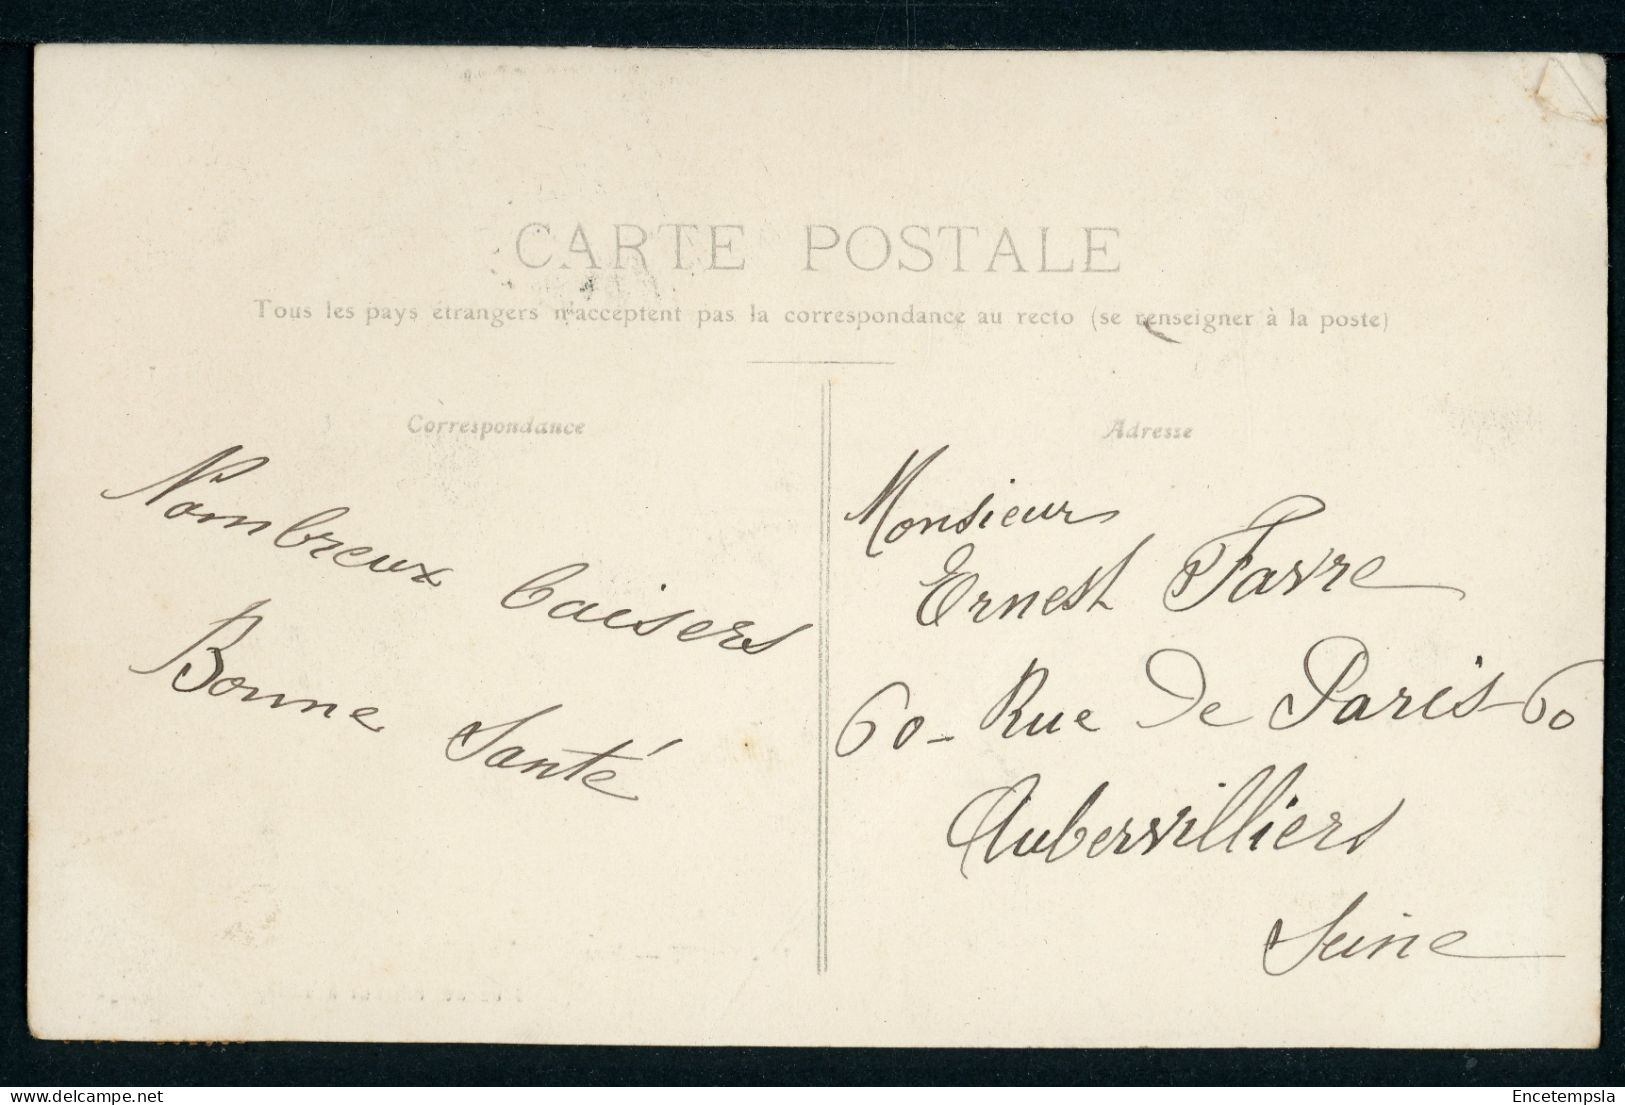 CARTE POSTALE
Tous les pays étrangers n'acceptent pas la correspondance au recto (se renseigner à la poste)
Correspondance
Nombreux baisers
Bonne Santé
Adresse
Monsieur
Ernest Favre
60 - Rue De Paris - 60
Aubervilliers
Seine
delcampe.net
Encetempsla